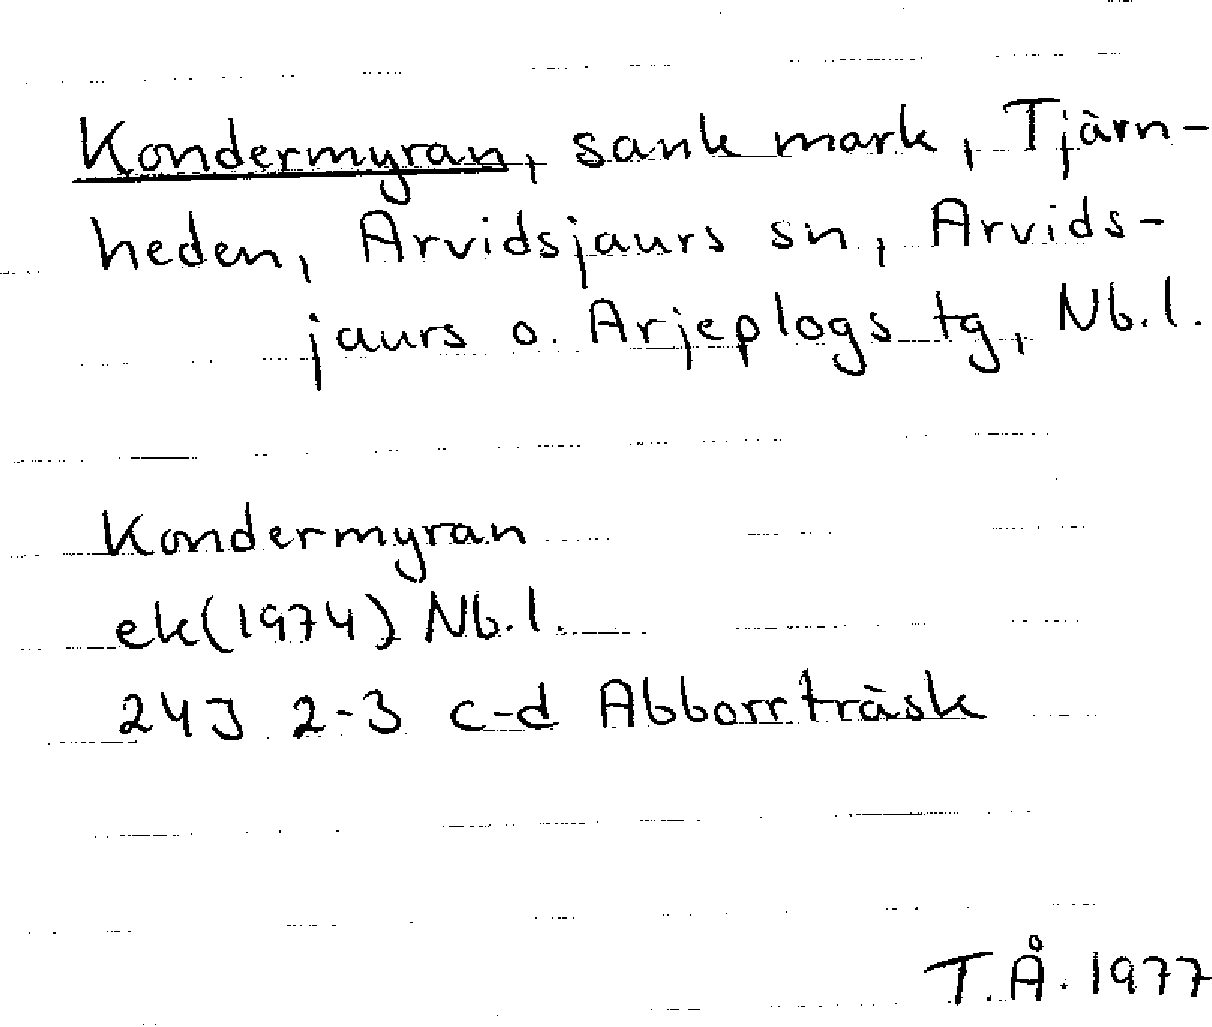 Kondermyran, sank mark, Tjärn-
heden, Arvidsjaurs sn, Arvids-
jaurs o. Arjeplogs tg, Nb.l.
Kondermyran
ek(1974) Nb.l.
24J 2-3 c-d Abborrträsk
T.Å. 1977